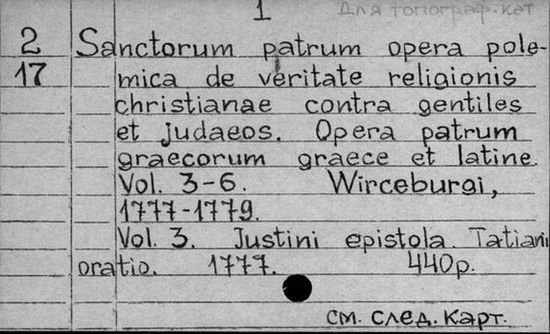 1
Для топограф. кат
2 Sanctorum patrum opera pole-
17 mica de veritate religionis
christianae contra gentiles
et judaeos. Opera patrum
graecorum graece et latine.
Vol. 3-6. Wirceburgi,
1777-1779.
Vol. 3. Justini epistola. Tatiani
oratio. 1777. 440p.
см. след. карт.